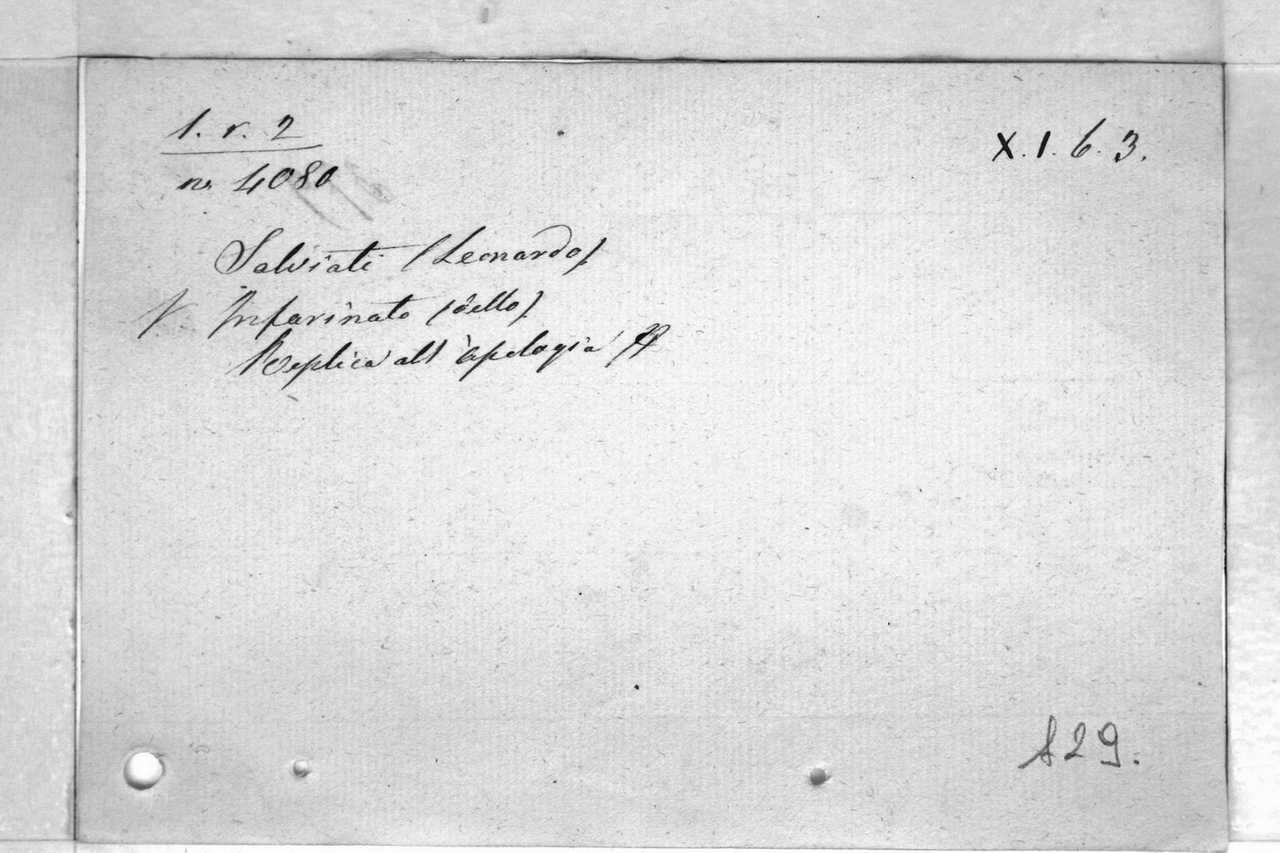 1. r. 2
X. 1. 6. 3.
no. 4080
Salviati (Leonardo)
V. Infarinato (dello)
Replica all 'apologia'
129.